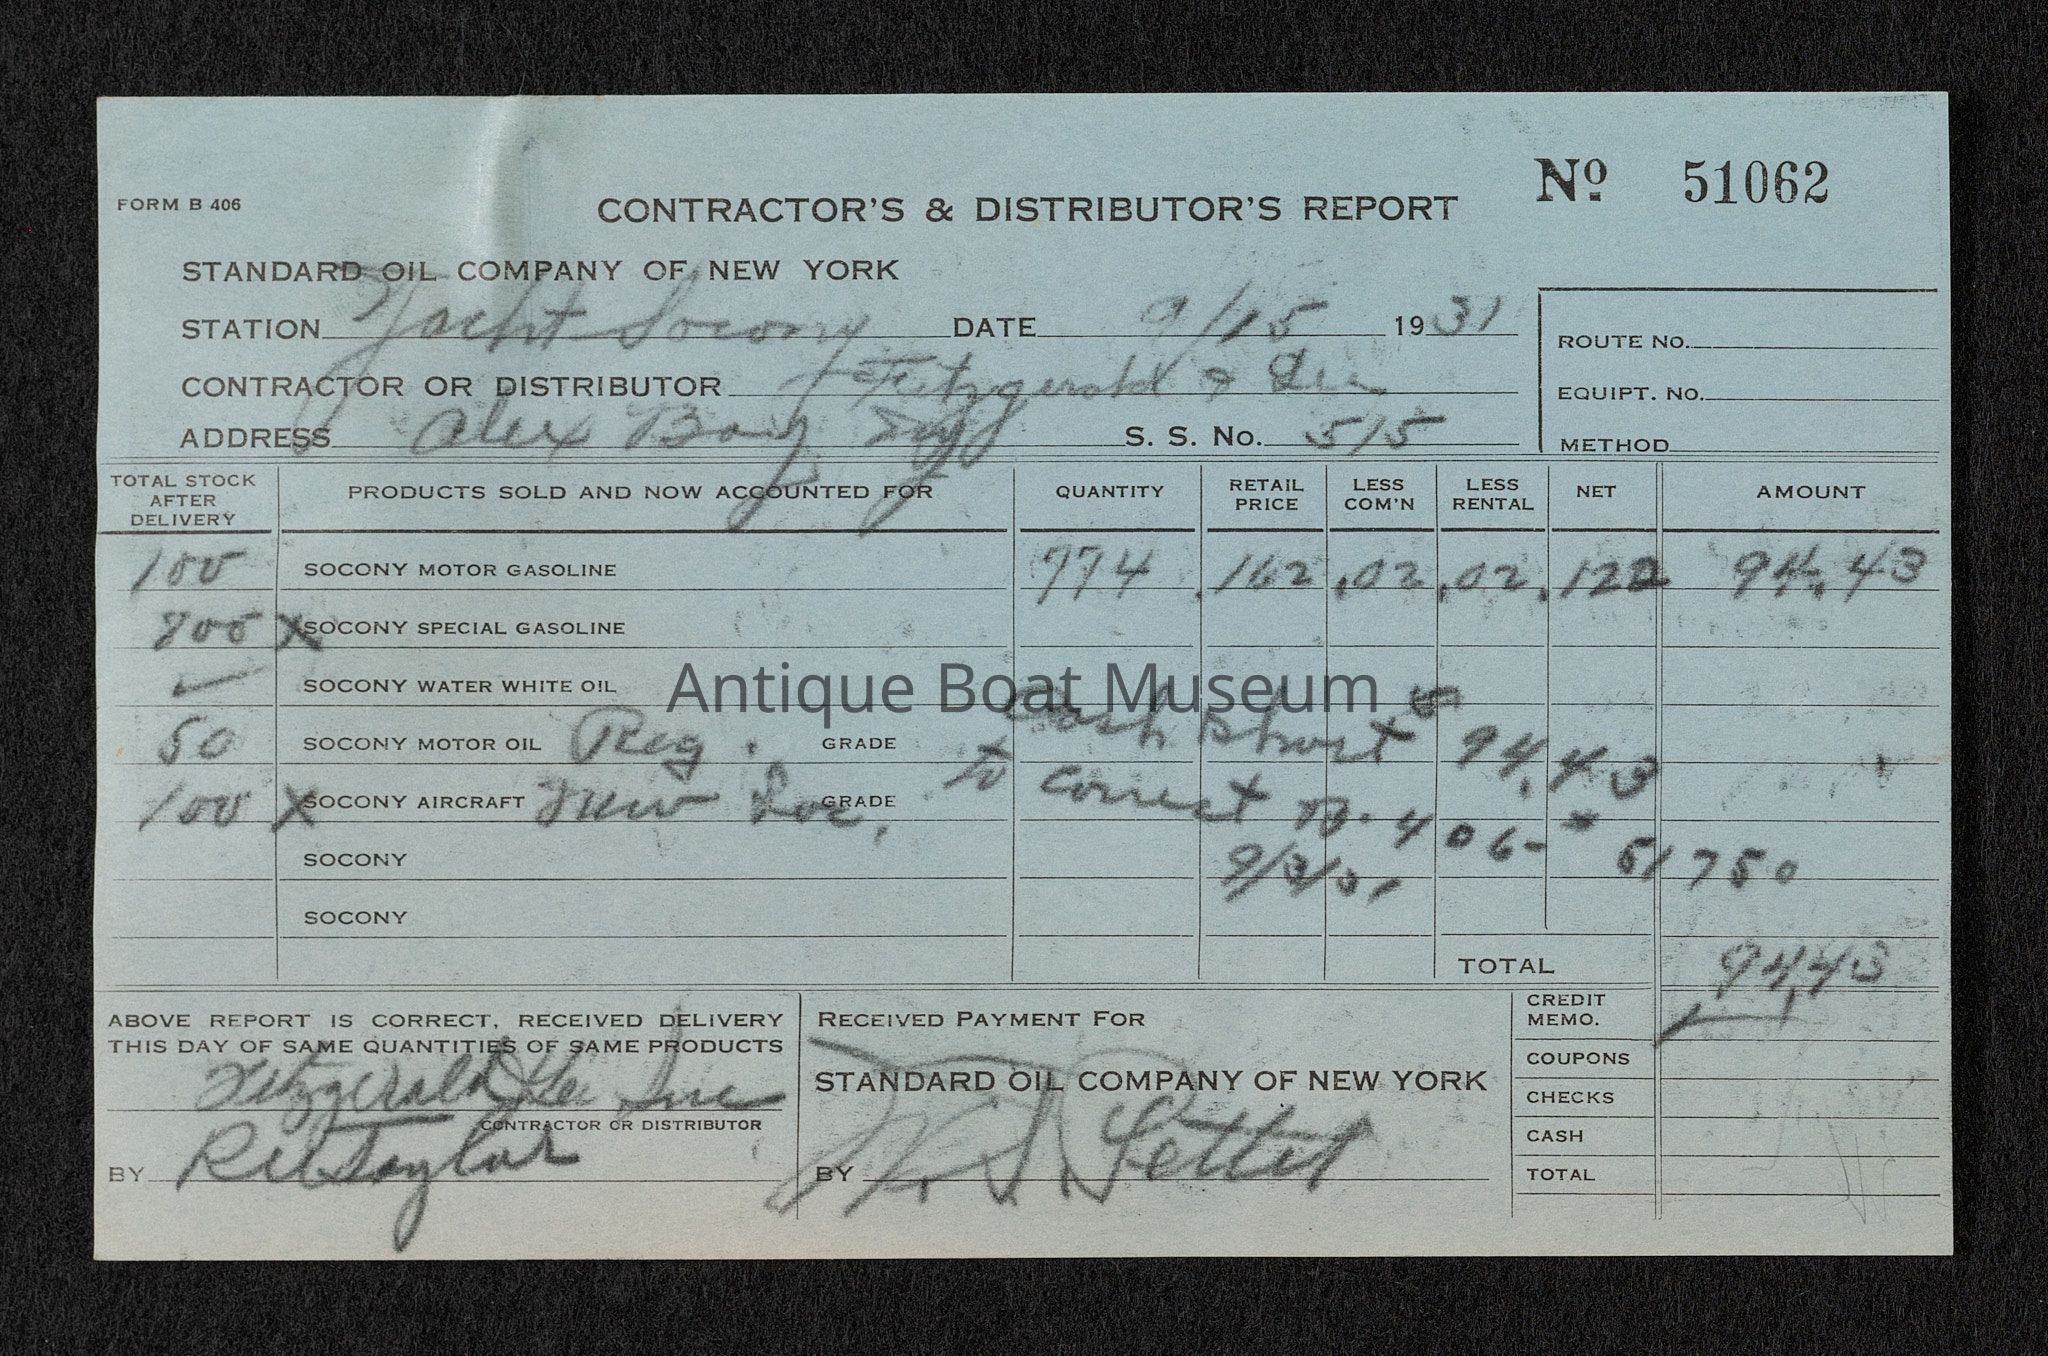 FORM B 406
CONTRACTOR'S & DISTRIBUTOR'S REPORT
Nº 51062
STANDARD OIL COMPANY OF NEW YORK
STATION Yacht Socony DATE 9/15 1931
CONTRACTOR OR DISTRIBUTOR Fitzgerald & Lee
ADDRESS Alex Bay S. S. No. 515
ROUTE NO.
EQUIPT. NO.
METHOD
TOTAL STOCK AFTER DELIVERY PRODUCTS SOLD AND NOW ACCOUNTED FOR QUANTITY RETAIL PRICE LESS COM'N LESS RENTAL NET AMOUNT
100 SOCONY MOTOR GASOLINE 774 .162 .02 .02 .122 94.43
X SOCONY SPECIAL GASOLINE
SOCONY WATER WHITE OIL
Antique Boat Museum
50 SOCONY MOTOR OIL Reg. GRADE Cash short 94.43
100 X SOCONY AIRCRAFT GRADE to correct B.406- 51750
SOCONY 9/3/31
SOCONY
TOTAL 94.43
ABOVE REPORT IS CORRECT, RECEIVED DELIVERY
THIS DAY OF SAME QUANTITIES OF SAME PRODUCTS
Fitzgerald Lee Inc
CONTRACTOR OR DISTRIBUTOR
BY Taylor
RECEIVED PAYMENT FOR
STANDARD OIL COMPANY OF NEW YORK
BY
CREDIT MEMO.
COUPONS
CHECKS
CASH
TOTAL